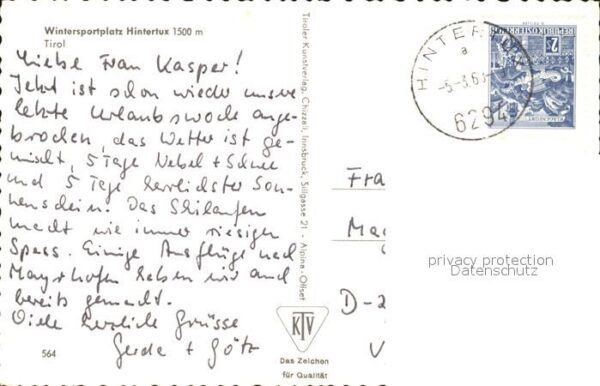 Wintersportplatz Hintertux 1500 m
Tirol
Liebe Frau Kasper!
Jetzt ist schon wieder unsere
letzte Urlaubswoche ange-
brochen, das Wetter ist ge-
mischt, 5 Tage Nebel + Schnee
und 5 Tage herrlichster Son-
nenschein. Das Skilaufen
macht wie immer riesigen
Spass. Einige Ausflüge nach
Mayrhofen haben wir auch
bereits gemacht.
Viele herzliche Grüsse
Gerda + Götz
564
Tiroler Kunstverlag, Chizzali, Innsbruck, Sillgasse 21 - Alpina-Offset
KTV
Das Zeichen
für Qualität
HINTERTUX
a
6294
REPUBLIK ÖSTERREICH
S2
Fra
Ma
D-2
V
privacy protection
Datenschutz